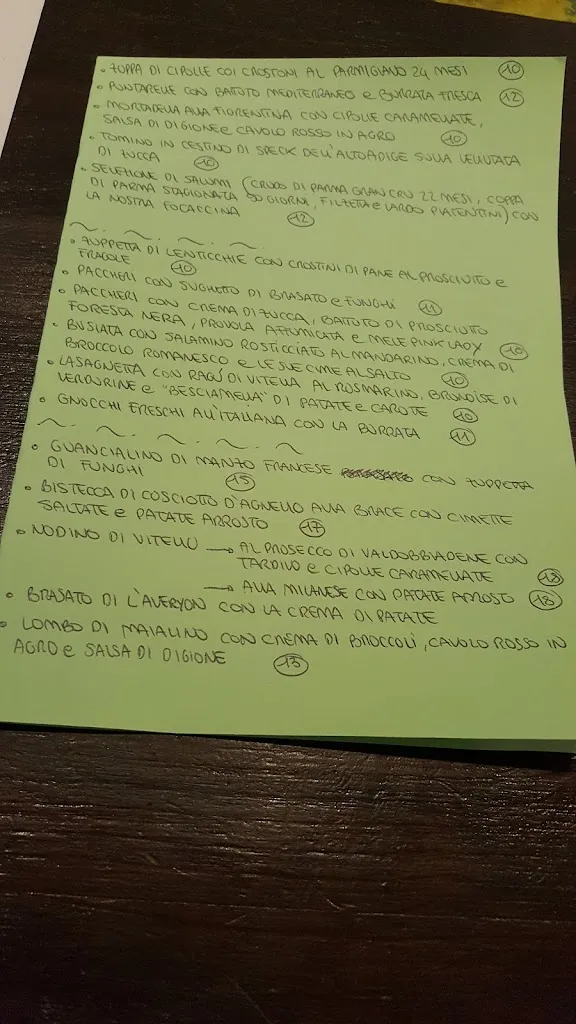 • ZUPPA DI CIPOLLE COI CROSTONI AL PARMIGIANO 24 MESI 10
• PUNTARELLE CON BATTUTO MEDITERRANEO e BURRATA FRESCA 12
• MORTADELLA ALLA FIORENTINA CON CIPOLLE CARAMELLATE,
SALSA DI DIGIONE e CAVOLO ROSSO IN AGRO 10
• TOMINO IN CESTINO DI SPECK DELL'ALTOADIGE SULLA VELLUTATA
DI ZUCCA 10
• SELEZIONE DI SALUMI (CRUDO DI PARMA GRAN CRU 22 MESI, COPPA
DI PARMA STAGIONATA 90 GIORNI, FILZETTA e LARDO PIACENTINI) CON
LA NOSTRA FOCACCINA 12
~ . ~ . ~ . ~
• ZUPPETTA DI LENTICCHIE CON CROSTINI DI PANE AL PROSCIUTTO e
FRAGOLE 10
• PACCHERI CON SUGHETTO DI BRASATO e FUNGHI 11
• PACCHERI CON CREMA DI ZUCCA, BATTUTO DI PROSCIUTTO
FORESTA NERA, PROVOLA AFFUMICATA e MELE PINK LADY 10
• BUSIATA CON SALAMINO ROSTICCIATO AL MANDARINO, CREMA DI
BROCCOLO ROMANESCO e LE SUE CIME AL SALTO 10
• LASAGNETTA CON RAGÙ DI VITELLA AL ROSMARINO, BRUNOISE DI
VERDURINE e "BESCIAMELLA" DI PATATE e CAROTE 10
• GNOCCHI FRESCHI ALL'ITALIANA CON LA BURRATA 11
~ . ~ . ~ . ~ . ~
• GUANCIALINO DI MANZO FRANCESE CON ZUPPETTA
DI FUNGHI 15
• BISTECCA DI COSCIOTTO D'AGNELLO ALLA BRACE CON CIMETTE
SALTATE e PATATE ARROSTO 17
• NODINO DI VITELLO → AL PROSECCO DI VALDOBBIADENE CON
TARDIVO e CIPOLLE CARAMELLATE 18
→ ALLA MILANESE CON PATATE ARROSTO 18
• BRASATO DI L'AVERYON CON LA CREMA DI PATATE
• LOMBO DI MAIALINO CON CREMA DI BROCCOLI, CAVOLO ROSSO IN
AGRO e SALSA DI DIGIONE 15